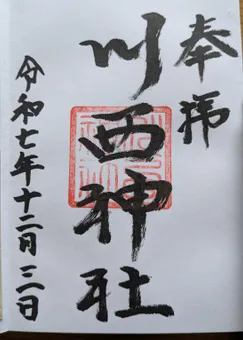 奉拝
川西神社
令和七年十二月二日